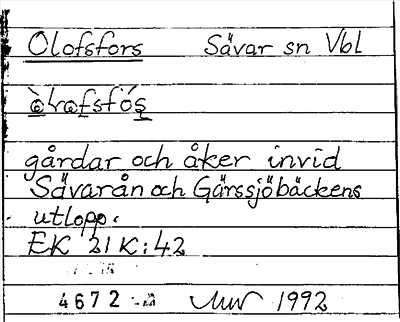 Olofsfors Sävar sn Vbl
gårdar och åker invid
Sävarån och Gärssjöbäckens
utlopp.
EK 21K:42
4672 1992